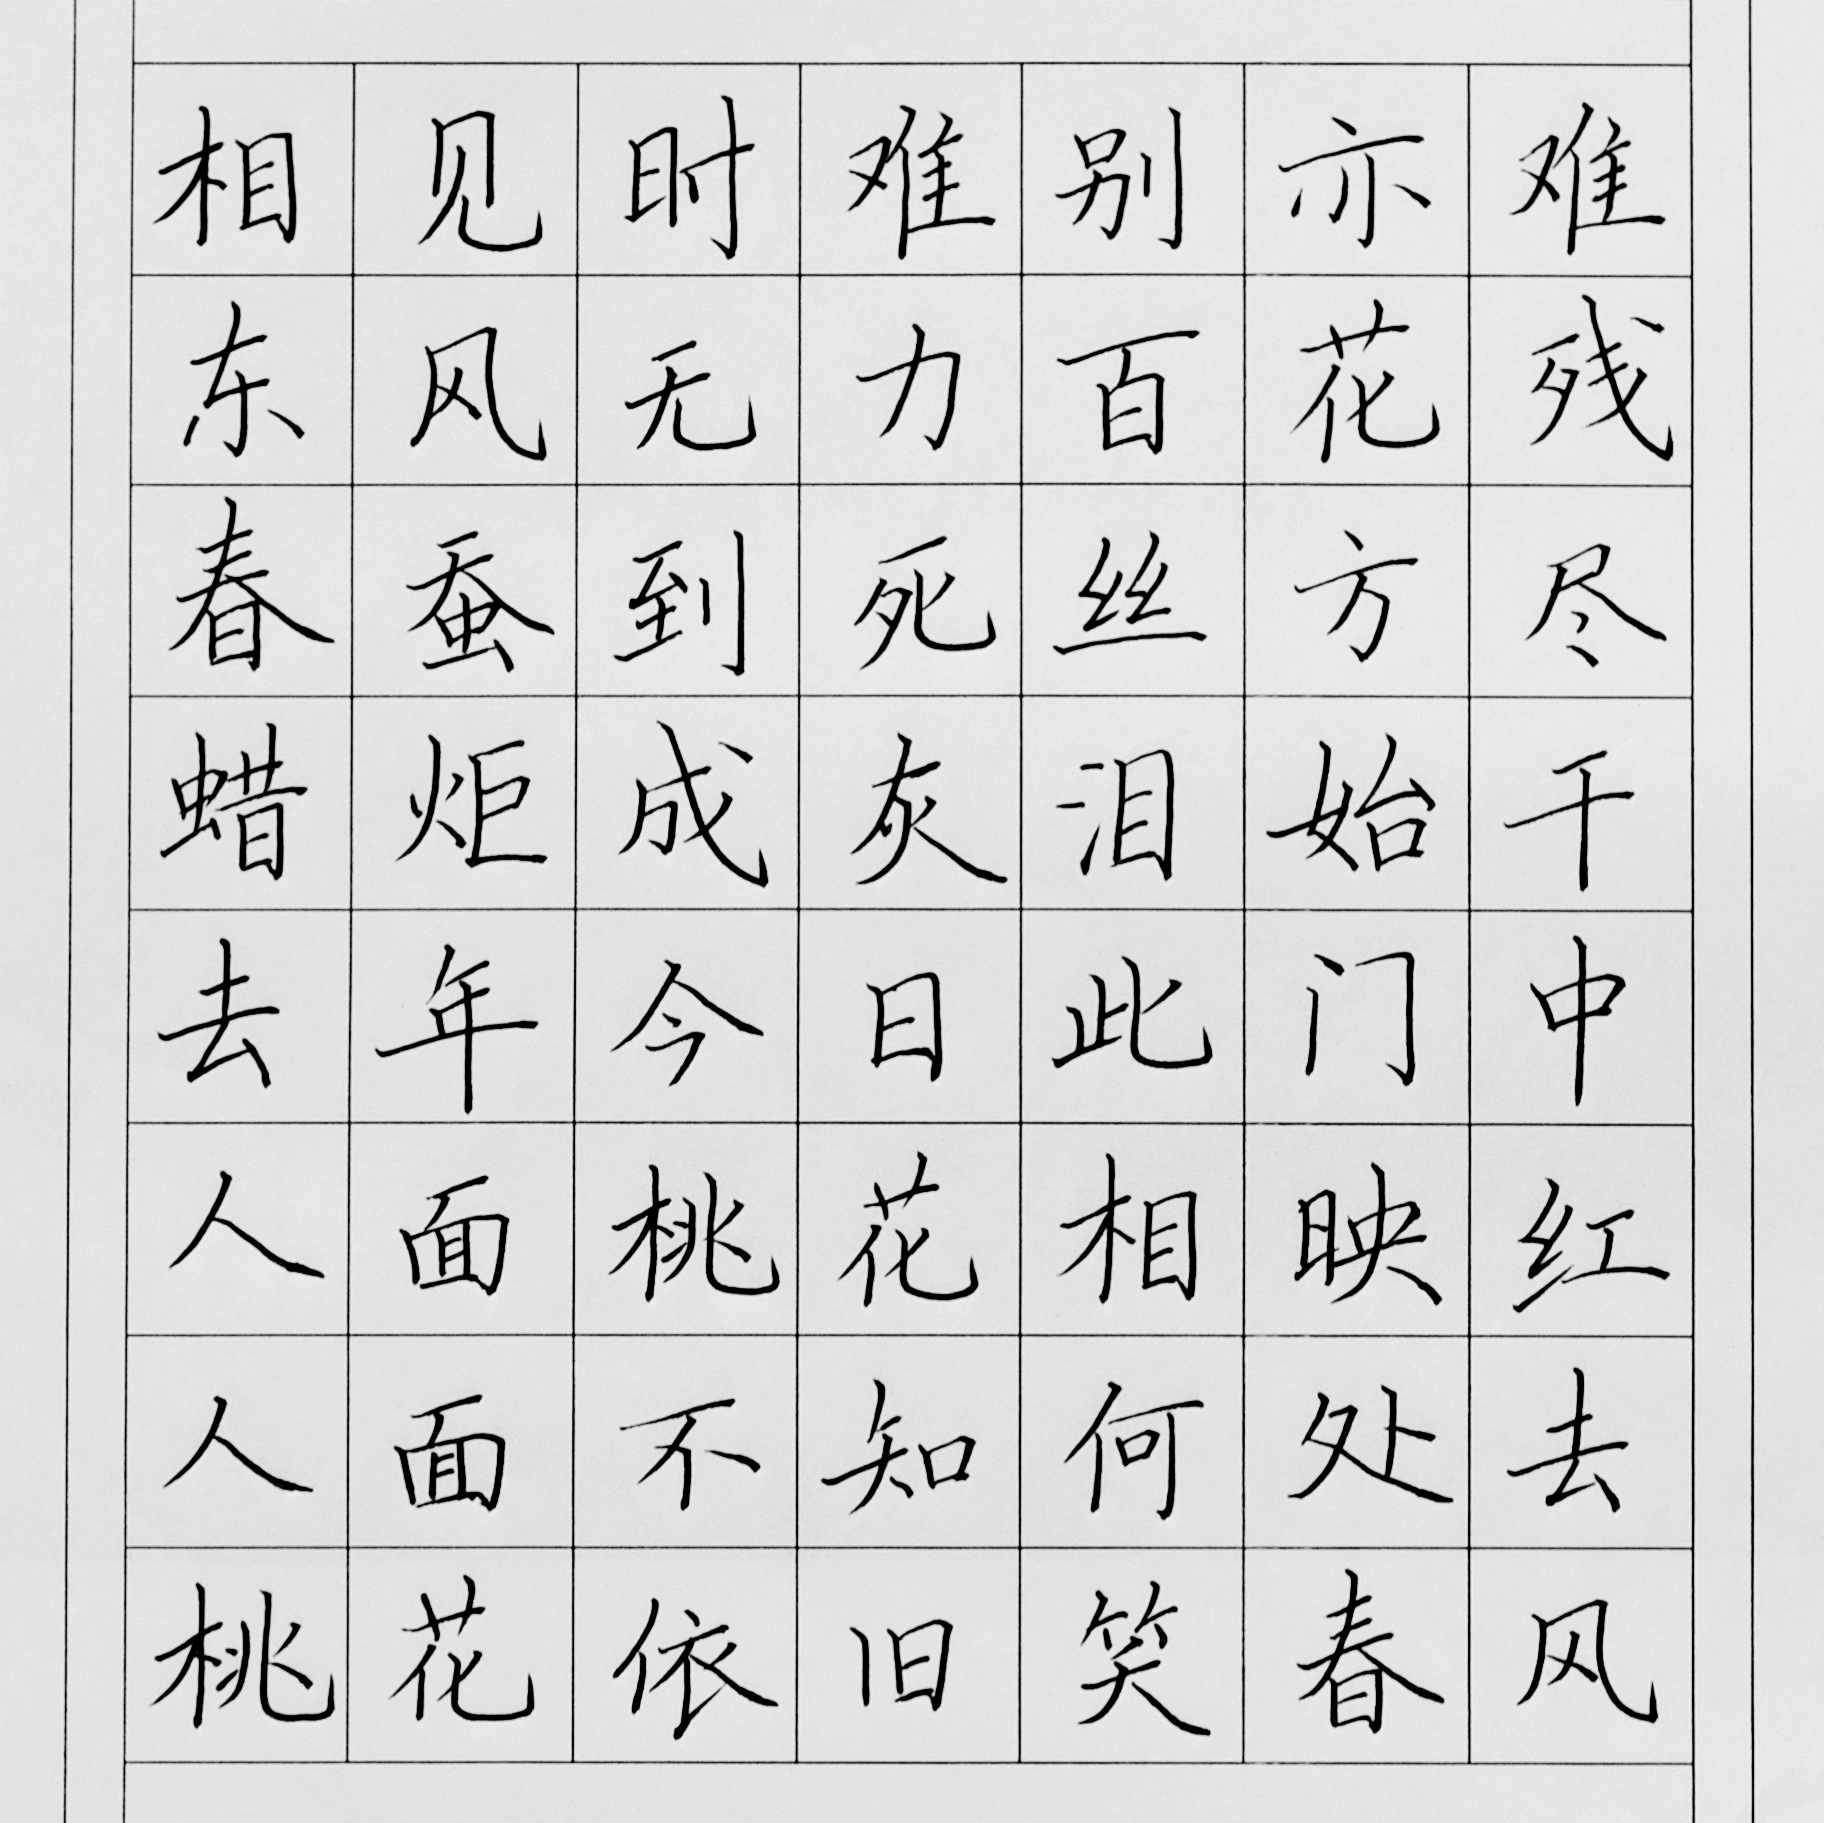 相见时难别亦难
东风无力百花残
春蚕到死丝方尽
蜡炬成灰泪始干
去年今日此门中
人面桃花相映红
人面不知何处去
桃花依旧笑春风